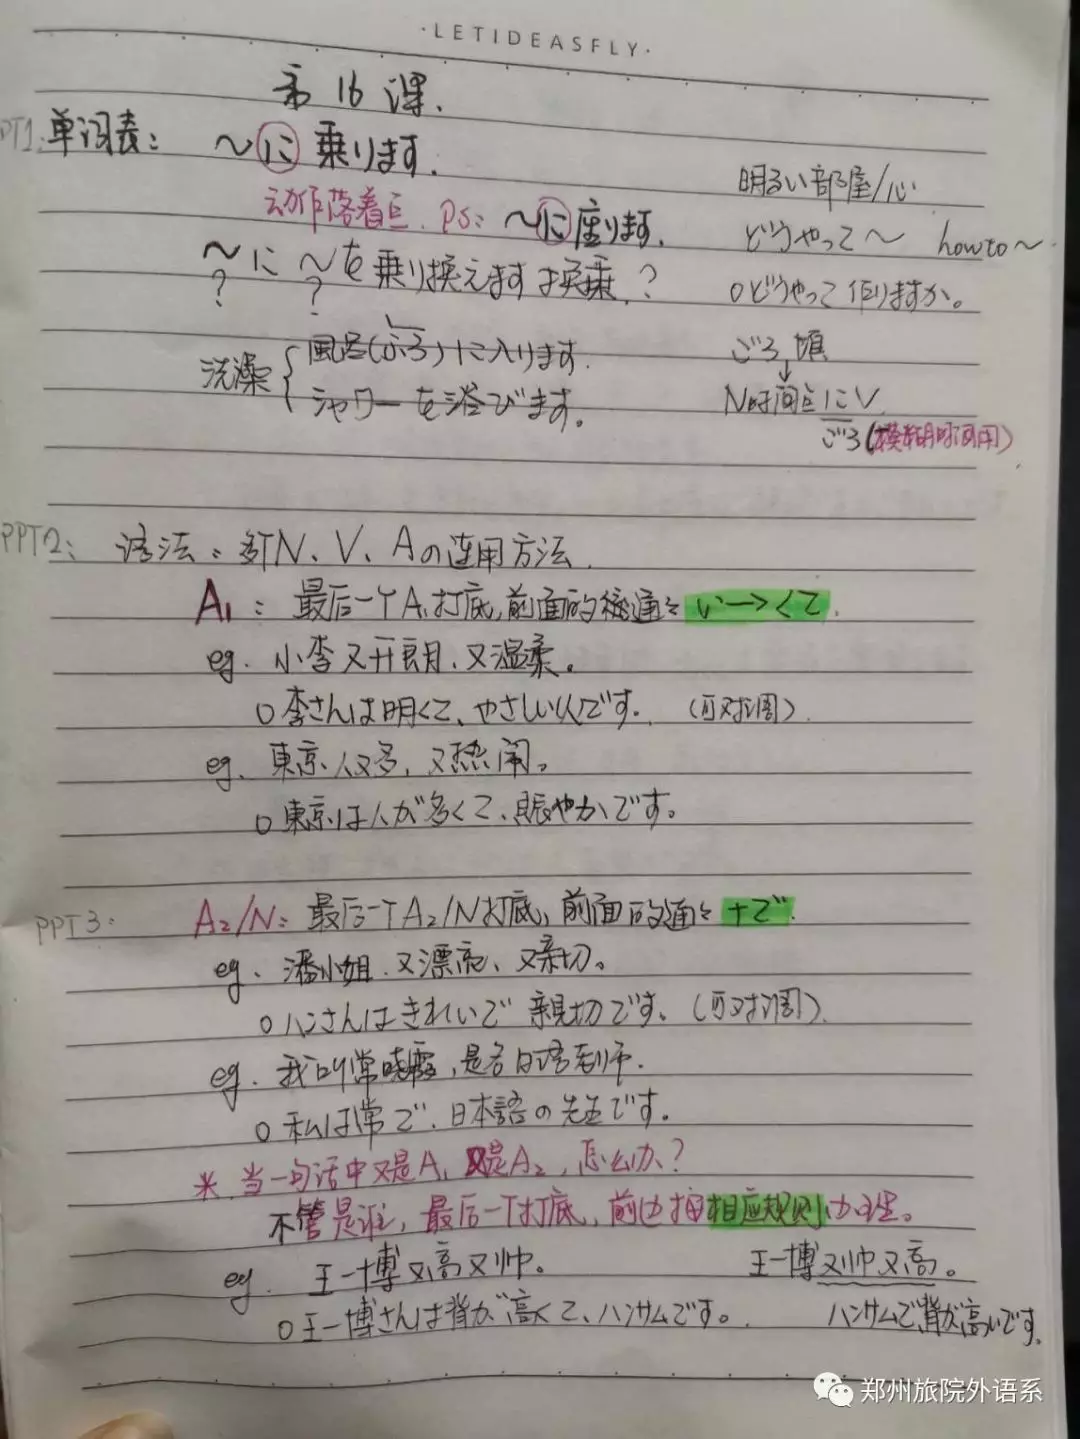 ·LETIDEASFLY·
第16课.
PT1:单词表： ～に乗ります.
动作落着点. ps: ～に座ります.
～に ～を乗り換えます 换乗.?
? ?
洗澡 { 風呂(ふろ)に入ります.
シャワーを浴びます。
明るい部屋/心
どうやって～ how to～.
○どうやって作りますか。
ごろ 頃
↓
N时间点にV
ごろ(模糊时间用)
PPT2: 语法：多个N、V、Aの连用方法.
A₁：最后一个A₁打底,前面的统通々 い→くて.
eg. 小李又开朗、又温柔。
○李さんは明くて、やさしい人です. (可对调)
eg. 東京人又多，又热闹。
○東京は人が多くて、賑やかです。
PPT3: A₂/N: 最后一个A₂/N打底,前面的通々+で.
eg. 潘小姐.又漂亮、又亲切。
○ハンさんはきれいで 親切です。(可对调)
eg. 我叫常晓霞,是名日语老师.
○私は常で、日本語の先生です。
* 当一句话中又是A₁ 又是A₂，怎么办？
不管是谁，最后一个打底，前边按相应规则办理。
eg. 王一博又高又帅。 王一博又帅又高。
○王一博さんは背が高くて、ハンサムです。 ハンサムで、背が高いです。
郑州旅院外语系